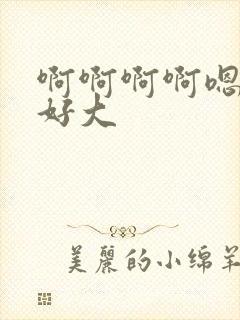 啊啊啊啊嗯
好大
美丽的小绵羊